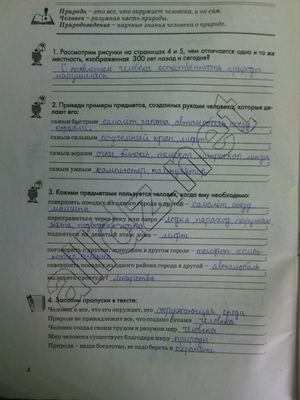 Природа – это все, что окружает человека, и он сам.
Человек – разумная часть природы.
Природоведение – научные знания человека о природе.
1. Рассмотрим рисунки на страницах 4 и 5, чем отличается одна и та же
местность, изображенная 300 лет назад и сегодня?
С появлением человека естественность природы
нарушилась
2. Приведи примеры предметов, созданных руками человека, которые де-
лают его:
самым быстрым самолет, ракета, автомобиль, поезд,
самым сильным подъемный кран, лифт
самым зорким очки, бинокль, телескоп, микроскоп, лупа
самым умным компьютер, калькулятор
3. Какими предметами пользуется человек, когда ему необходимо:
совершить поездку из одного города в другой – самолет, поезд,
машина
переправиться через реку или озеро – лодка, пароход,
подняться на девятый этаж дома – лифт
поговорить с другом, живущим в другом городе – телефон,
совершить поездку из одного района города в другой – автомобиль
вылечить простуду? – лекарства
4. Заполни пропуски в тексте:
Человек и все, что его окружает, это окружающая среда
Природе не принадлежит все, что создано руками человека
Человек создал своим трудом и разумом мир человека
Мир человека существует благодаря миру природы
Природа – наше богатство, ее надо беречь и охранять
4